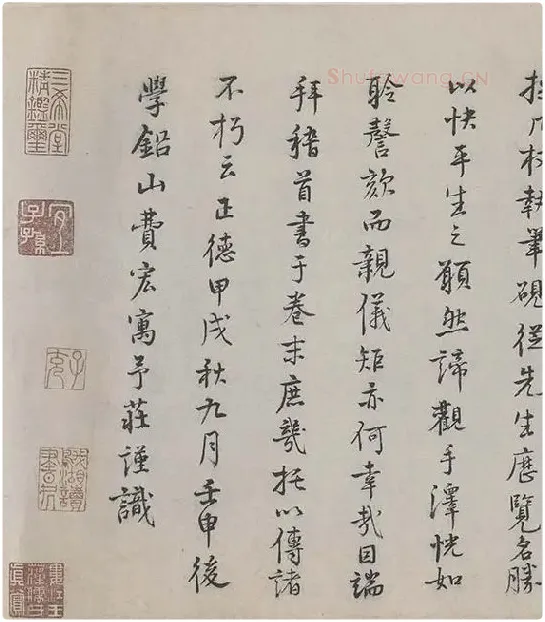 執筆硯從先生歷覽名勝
以快平生之願然諦觀手澤恍如
聆謦欬而親儀矩亦何幸哉因端
拜稽首書于卷末庶幾托以傳諸
不朽云正德甲戌秋九月壬申後
學鉛山費宏寓予莊謹識
三希堂精鑑璽
宜子孫
Shufawang.CN